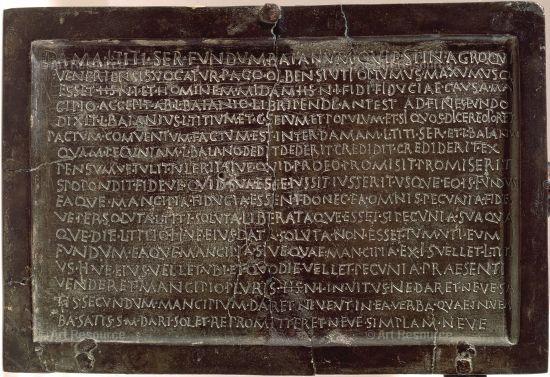 DAMA·L·TITI·SER·FVNDVM·BAIANVM·QVI·EST·IN·AGRO·QVI
VENERIENSIS·VOCATVR·PAGO·OLBENSI·VTI·OPTVMVS·MAXVMVSQ
ESSET·HS·N·I·ET·HOMINEM·MIDAM·HS·N·I·FIDI·FIDVCIAE·CAVSA·MAN
CIPIO·ACCEPIT·AB·L·BAIANIO·LIBRIPENDE·ANTEST·ADFINES·FVNDO
DIXIT·L·BAIANIVS·L·TITIVM·ET·C·SEIVM·ET·POPVLVM·ET·SI·QVOS·DICERE·OPORTET
PACTVM·COMVENTVM·FACTVM·EST·INTER·DAMAM·L·TITI·SER·ET·L·BAIANIVM
QVAM·PECVNIAM·L·BAIANO·DEDIT·DEDERIT·CREDIDIT·CREDIDERIT·EX
PENSVMVE·TVLIT·TVLERIT·SIVE·QVID·PRO·EO·PROMISIT·PROMISERIT
SPOPONDIT·FIDEVE·QVID·SVA·ESSE·IVSSIT·IVSSERIT·VSQVE·EO·IS·FVNDVS
EAQVE·MANCIPIA·FIDVCIAE·ESSENT·DONEC·EA·OMNIS·PECVNIA·FIDES
VE·PERSOLVTA·L·TITI·SOLVTA·LIBERATAQVE·ESSET·SI·PECVNIA·SVA·QVA
QVE·DIE·L·TITIO·H·VE·EIVS·DATA·SOLVTA·NON·ESSET·TVM·VTI·EVM
FVNDVM·EAQVE·MANCIPIA·SIVE·QVAE·MANCIPIA·EX·IS·VELLET·L·TITI
VS·H·VE·EIVS·VELLET·VBI·ET·QVO·DIE·VELLET·PECVNIA·PRAESENTI
VENDERET·MANCIPIO·PLVRIS·HS·N·I·INVITVS·NE·DARET·NEVE·SA
TIS·SECVNDVM·MANCIPIVM·DARET·NEVE·VT·IN·EA·VERBA·QVAE·IN·VER
BA·SATIS·S·M·DARI·SOLET·REPROMITTERET·NEVE·SIMPLAM·NEVE
© Art Resource
© Art Resource